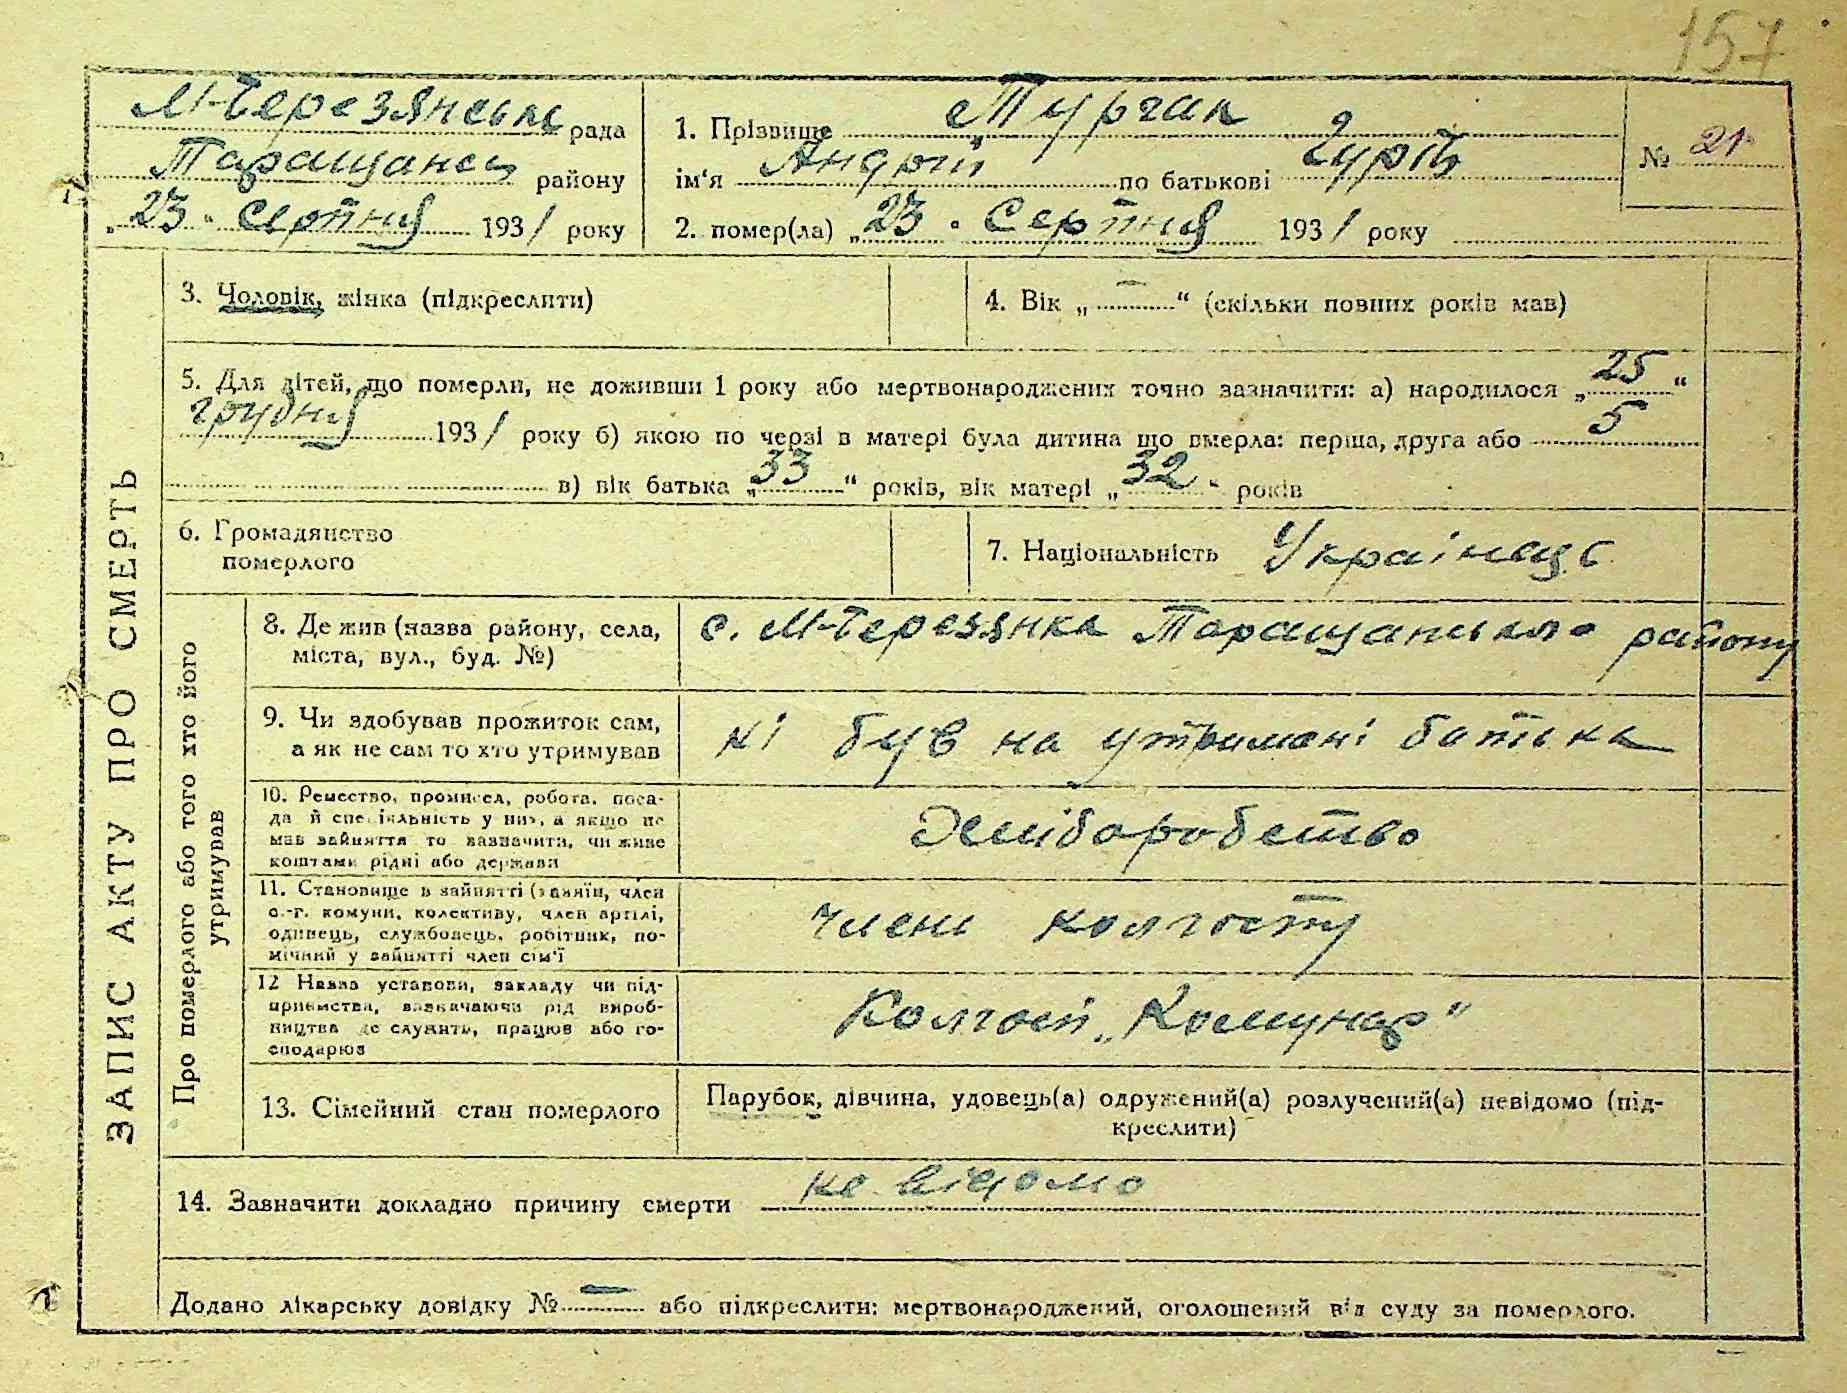 157
М-Березянська рада
Таращанськ району
„23" Серпня 1931 року
1. Прізвище Турчак
ім'я Андрій по батькові Гурій
2. помер(ла) „23" Серпня 1931 року
№ 21
ЗАПИС АКТУ ПРО СМЕРТЬ
3. Чоловік, жінка (підкреслити)
4. Вік „ – “ (скільки повних років мав)
5. Для дітей, що померли, не доживши 1 року або мертвонароджених точно зазначити: а) народилося „25“
грудня 1931 року б) якою по черзі в матері була дитина що вмерла: перша, друга або 5
в) вік батька „33“ років, вік матері „32" років
6. Громадянство
померлого
7. Національність Українець
Про померлого або того хто його
утримував
8. Де жив (назва району, села,
міста, вул., буд. №)
с. М-Березянка Таращанського району
9. Чи здобував прожиток сам,
а як не сам то хто утримував
ні був на утримані батька
10. Ремество, промисел, робота, поса-
да й спеціяльність у них, а якщо не
мав зайняття то зазначити, чи живе
коштами рідні або держави
Хліборобство
11. Становище в зайнятті (хазяїн, член
с.-г. комуни, колективу, член артілі,
одинець, службовець, робітник, по-
мічний у зайнятті член сім'ї
член колгоспу
12 Назва установи, закладу чи під-
приємства, зазначаючи рід вироб-
ництва де служить, працює або го-
сподарює
Колгосп „Комунар"
13. Сімейний стан померлого
Парубок, дівчина, удовець(а) одружений(а) розлучений(а) невідомо (під-
креслити)
14. Зазначити докладно причину смерти не відомо
Додано лікарську довідку № – або підкреслити: мертвонароджений, оголошений від суду за померлого.